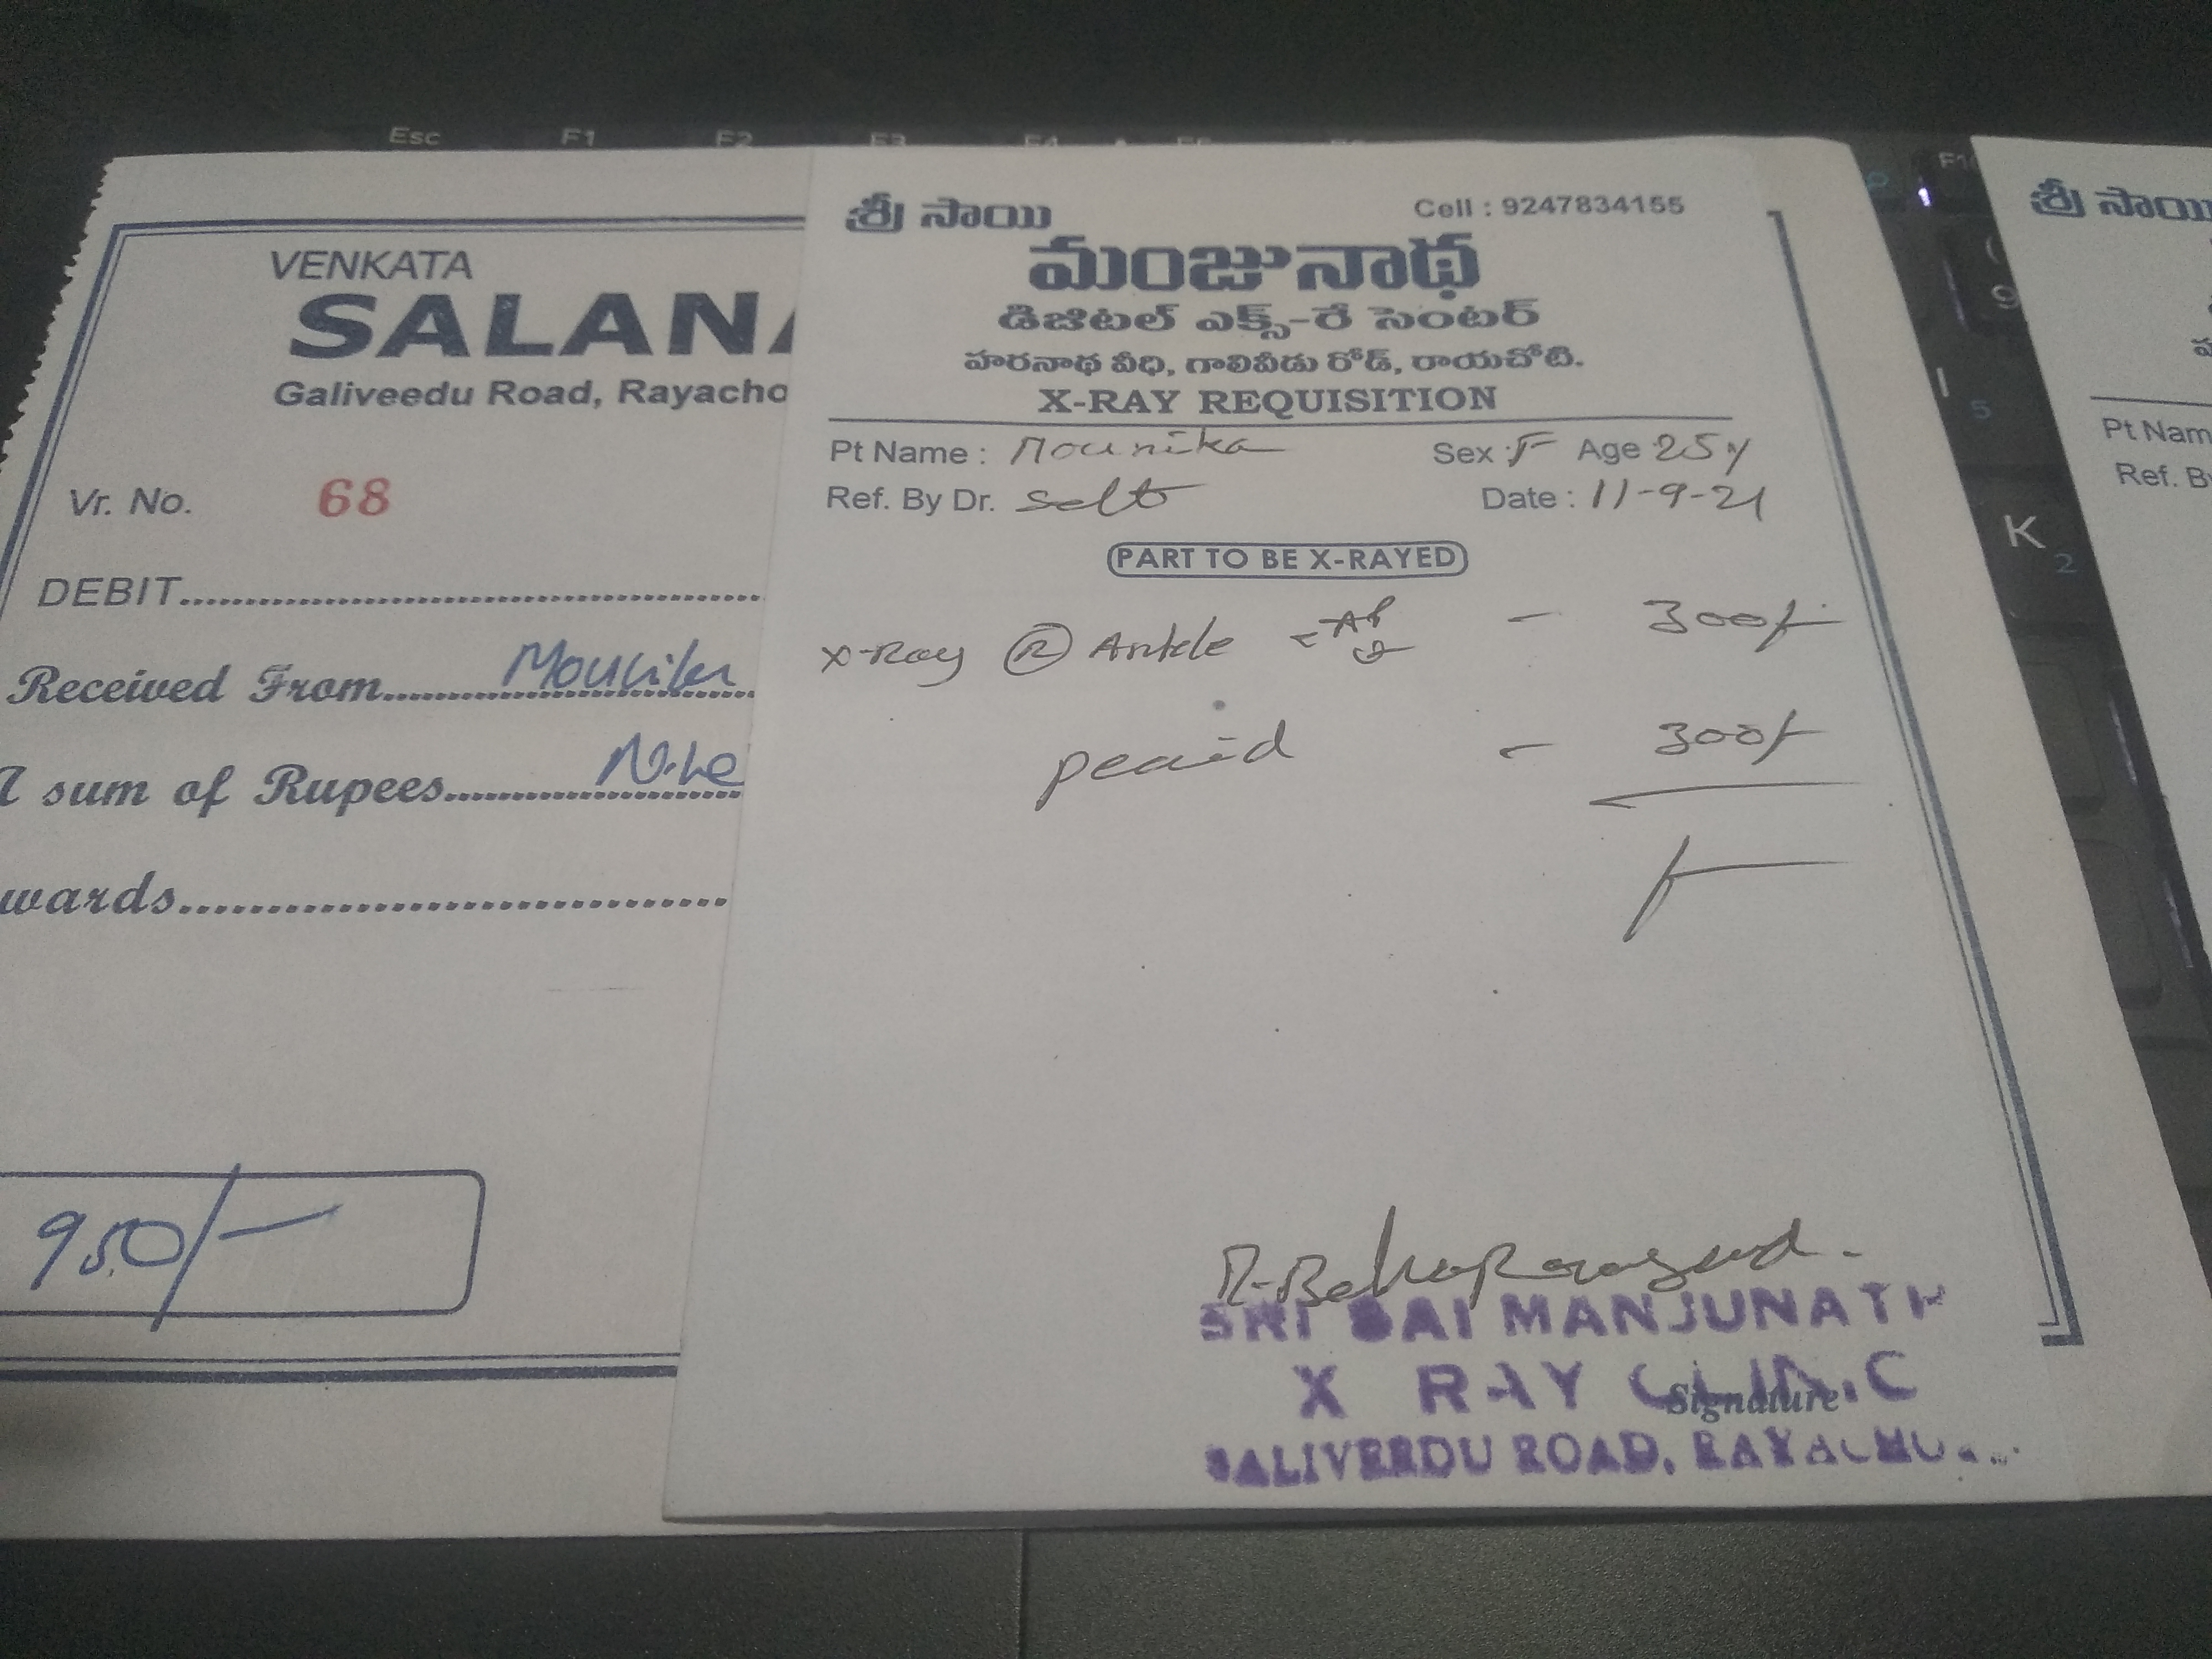 Esc F1 F2 F3 F4
VENKATA
SALANA
Galiveedu Road, Rayacho
Vr. No. 68
DEBIT
Received From
sum of Rupees
wards
950/-
శ్రీ సాయి
Cell : 9247834155
మంజునాథ
డిజిటల్ ఎక్స్-రే సెంటర్
హరనాథ వీధి, గాలివీడు రోడ్, రాయచోటి.
X-RAY REQUISITION
Pt Name : Mounika Sex : F Age 25y
Ref. By Dr. Self Date : 11-9-21
PART TO BE X-RAYED
X-Ray R Ankle AP - 300/-
- 300/-
SRI SAI MANJUNATH
X RAY CLINIC
Signature
GALIVEEDU ROAD, RAYACHO
9
I 5
K 2
శ్రీ సాయి
Pt Nam
Ref. By